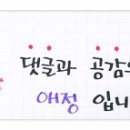 댓글과 공감은
애정 입니